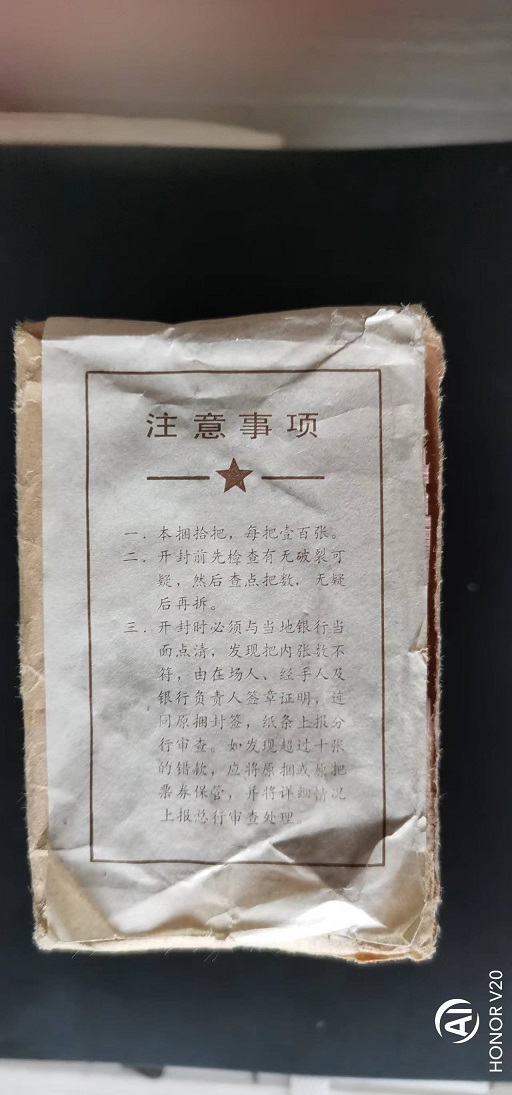 注意事项
一．本捆拾把，每把壹百张。
二．开封前先检查有无破裂可
疑，然后查点把数，无疑
后再拆。
三．开封时必须与当地银行当
面点清，发现把内张数不
符，由在场人、经手人及
银行负责人签章证明，连
同原捆封签，纸条上报分
行审查。如发现超过十张
的错款，应将原捆或原把
票券保管，并将详细情况
上报总行审查处理。
AI
HONOR V20